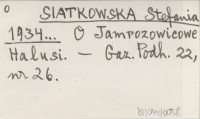 SIATKOWSKA Stefania
1934... O Jampozowicowe
Halusi. — Gaz. Podh. 22,
nr 26.